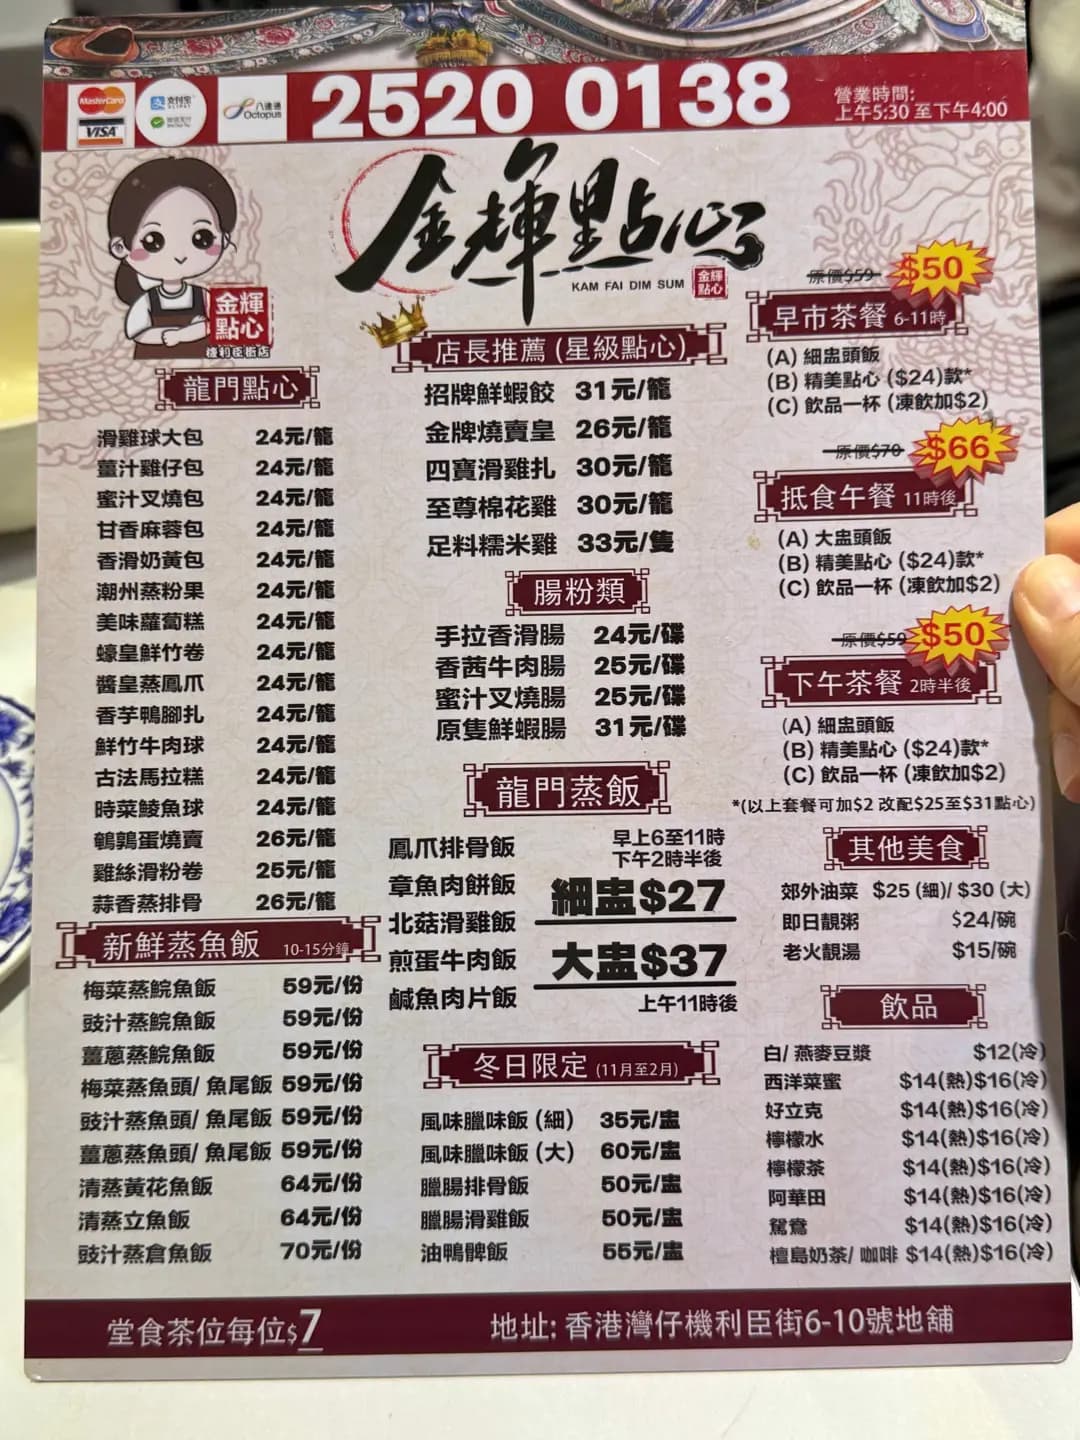 MasterCard
VISA
支付宝
ALIPAY
微信支付
八達通
Octopus
2520 0138
營業時間:
上午5:30 至下午4:00
金輝點心
KAM FAI DIM SUM
金輝
點心
金輝
點心
機利臣街店
龍門點心
滑雞球大包 24元/籠
薑汁雞仔包 24元/籠
蜜汁叉燒包 24元/籠
甘香麻蓉包 24元/籠
香滑奶黃包 24元/籠
潮州蒸粉果 24元/籠
美味蘿蔔糕 24元/籠
蠔皇鮮竹卷 24元/籠
醬皇蒸鳳爪 24元/籠
香芋鴨腳扎 24元/籠
鮮竹牛肉球 24元/籠
古法馬拉糕 24元/籠
時菜鯪魚球 24元/籠
鵪鶉蛋燒賣 26元/籠
雞絲滑粉卷 25元/籠
蒜香蒸排骨 26元/籠
新鮮蒸魚飯 10-15分鐘
梅菜蒸鯇魚飯 59元/份
豉汁蒸鯇魚飯 59元/份
薑蔥蒸鯇魚飯 59元/份
梅菜蒸魚頭/ 魚尾飯 59元/份
豉汁蒸魚頭/ 魚尾飯 59元/份
薑蔥蒸魚頭/ 魚尾飯 59元/份
清蒸黃花魚飯 64元/份
清蒸立魚飯 64元/份
豉汁蒸倉魚飯 70元/份
店長推薦 (星級點心)
招牌鮮蝦餃 31元/籠
金牌燒賣皇 26元/籠
四寶滑雞扎 30元/籠
至尊棉花雞 30元/籠
足料糯米雞 33元/隻
腸粉類
手拉香滑腸 24元/碟
香茜牛肉腸 25元/碟
蜜汁叉燒腸 25元/碟
原隻鮮蝦腸 31元/碟
龍門蒸飯
鳳爪排骨飯
章魚肉餅飯
北菇滑雞飯
煎蛋牛肉飯
鹹魚肉片飯
早上6至11時
下午2時半後
細盅$27
大盅$37
上午11時後
冬日限定 (11月至2月)
風味臘味飯 (細) 35元/盅
風味臘味飯 (大) 60元/盅
臘腸排骨飯 50元/盅
臘腸滑雞飯 50元/盅
油鴨髀飯 55元/盅
原價$59 $50
早市茶餐 6-11時
(A) 細盅頭飯
(B) 精美點心 ($24)款*
(C) 飲品一杯 (凍飲加$2)
原價$70 $66
抵食午餐 11時後
(A) 大盅頭飯
(B) 精美點心 ($24)款*
(C) 飲品一杯 (凍飲加$2)
原價$59 $50
下午茶餐 2時半後
(A) 細盅頭飯
(B) 精美點心 ($24)款*
(C) 飲品一杯 (凍飲加$2)
*(以上套餐可加$2 改配$25至$31點心)
其他美食
郊外油菜 $25 (細)/ $30 (大)
即日靚粥 $24/碗
老火靚湯 $15/碗
飲品
白/ 燕麥豆漿 $12(冷)
西洋菜蜜 $14(熱)$16(冷)
好立克 $14(熱)$16(冷)
檸檬水 $14(熱)$16(冷)
檸檬茶 $14(熱)$16(冷)
阿華田 $14(熱)$16(冷)
鴛鴦 $14(熱)$16(冷)
檀島奶茶/ 咖啡 $14(熱)$16(冷)
堂食茶位每位$7
地址: 香港灣仔機利臣街6-10號地舖